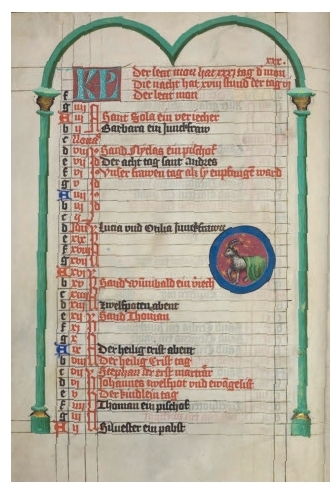 xxx.
KP Der lest mon hat xxxj tag d mon
Die nacht hat xviij stund der tag vj
f Der lest mon
g iiij
A iij Sant Gola ein veriecher
b ij Barbara ein junckfraw
c Nona
d viij Sant Nyclas ein pischof
e vij Der acht tag sant andres
f vj Vnser frawen tag als sy enpfangen ward
g v
A iiij
b iij
c ij
d Lucia vnd Otilia junckfrawe
e xix
f xviij
g xvij
A xvj
b xv Sand wunibald ein
c xiiij
d xiij zwelfpoten abent
e xij Sand Thoman
f xj
g x
A ix Der heilig crist abent
b viij Der heilig Crist tag
c vij Stephan der erst martrer
d vj Johannes zwelfpot vnd ewangelist
e v Der kindlein tag
f iiij Thoman ein pischof
g iij
A ij Siluester ein pabst